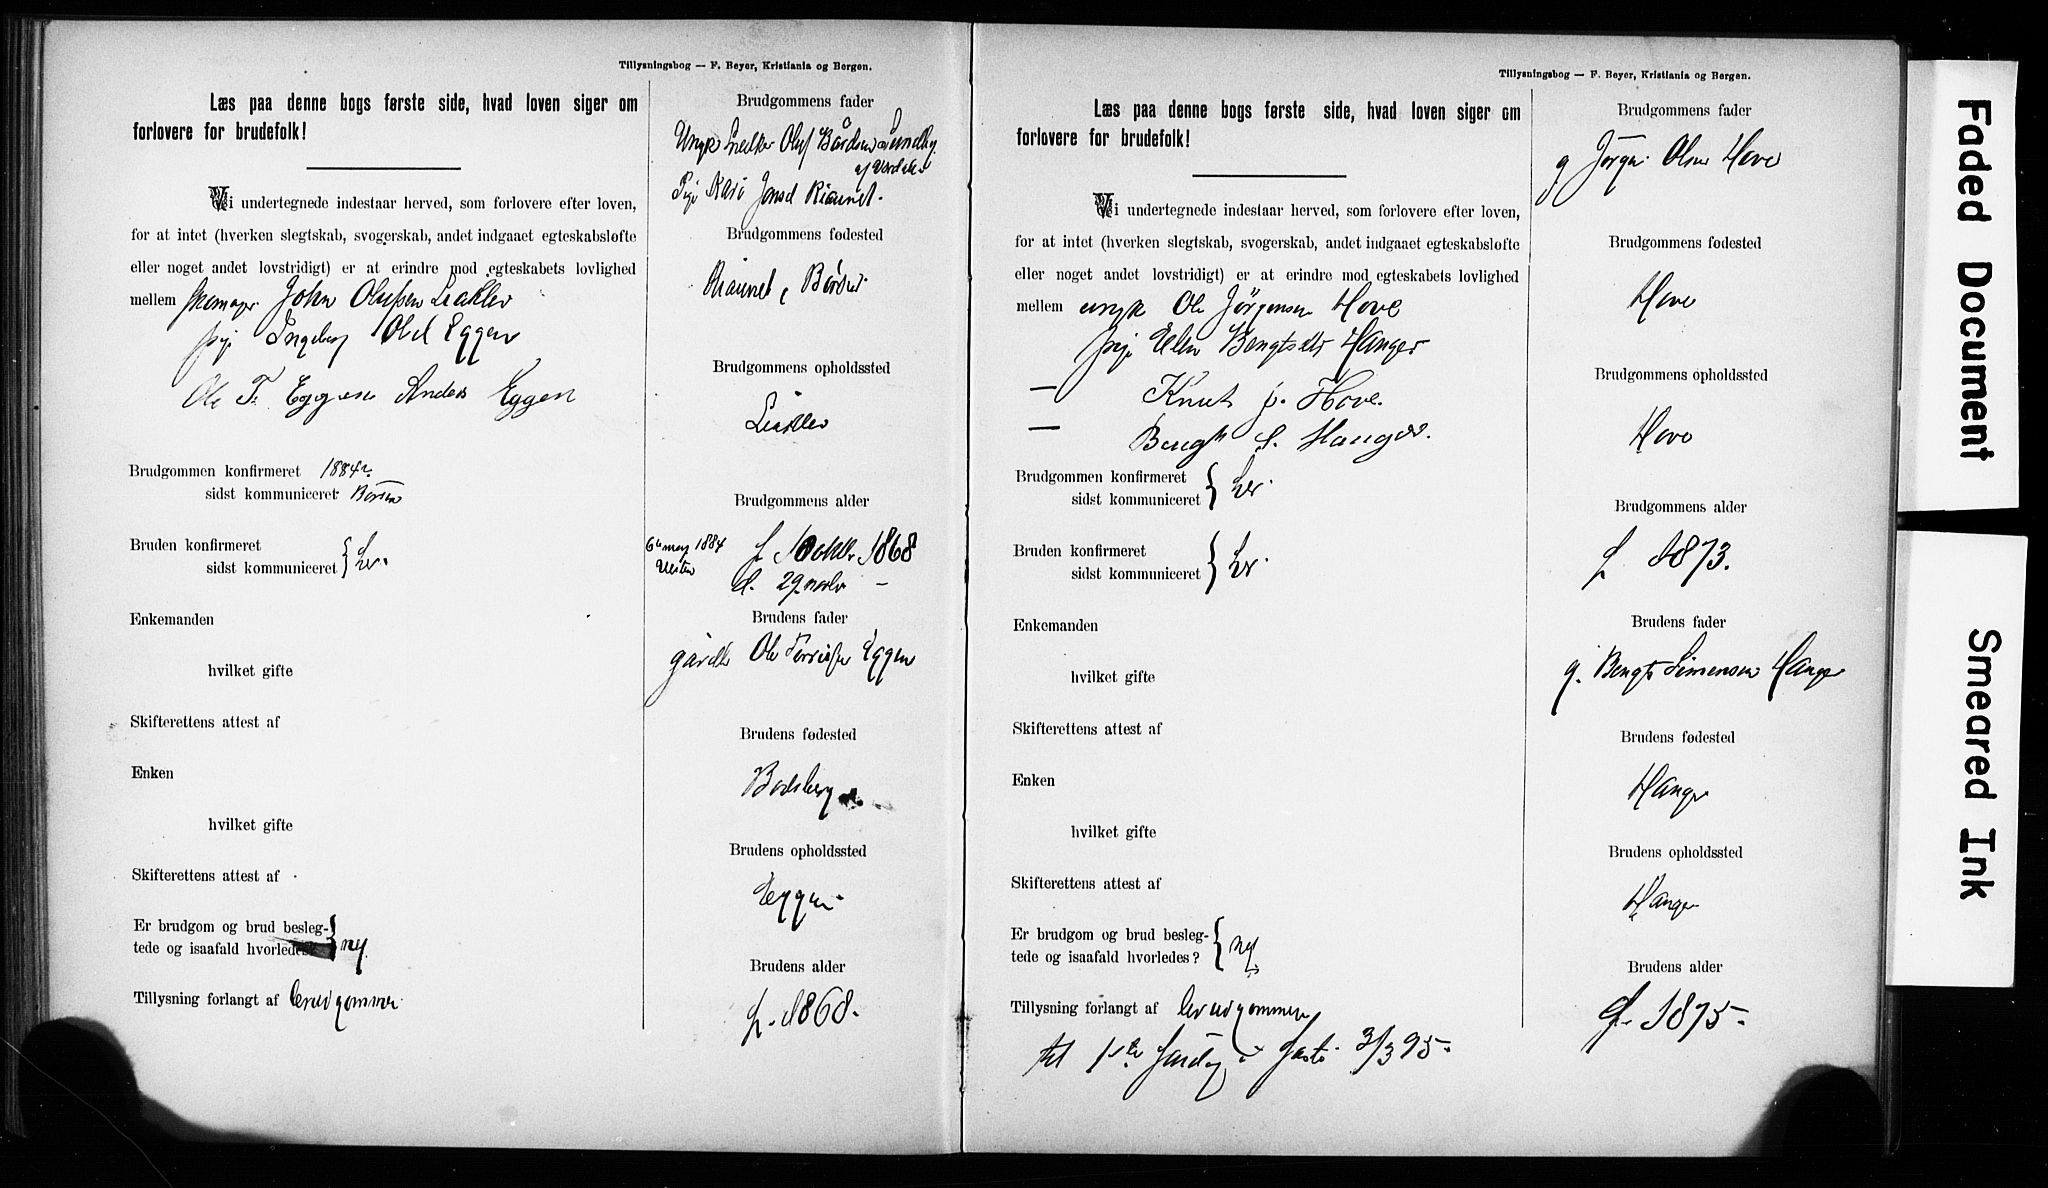 Tillysningsbog — F. Beyer, Kristiania og Bergen.
Læs paa denne bogs første side, hvad loven siger om
forlovere for brudefolk!
Vi undertegnede indestaar herved, som forlovere efter loven,
for at intet (hverken slegtskab, svogerskab, andet indgaaet egteskabsløfte
eller noget andet lovstridigt) er at erindre mod egteskabets lovlighed
mellem skomager John Olufsen
pige Ingeborg Olsd Eggen
Ole T. Eggen Anders Eggen
Brudgommen konfirmeret 1884
sidst kommuniceret Børsen
Bruden konfirmeret
sidst kommuniceret } her.
Enkemanden
hvilket gifte
Skifterettens attest af
Enken
hvilket gifte
Skifterettens attest af
Er brudgom og brud besleg-
tede og isaafald hvorledes } nej.
Tillysning forlangt af brudgommen
Brudgommens fader
Ungk Snedker Oluf Bårdsen Sundby
af Værdalen
Pige Kari Jonsd
Brudgommens fødested
Børsen
Brudgommens opholdssted
Brudgommens alder
6te may 1884 f. 1 oktbr 1868
d. 29 novbr —
Brudens fader
gårdbr Ole Eggen
Brudens fødested
Bodsberg
Brudens opholdssted
Eggen
Brudens alder
f. 1868.
Tillysningsbog — F. Beyer, Kristiania og Bergen.
Læs paa denne bogs første side, hvad loven siger om
forlovere for brudefolk!
Vi undertegnede indestaar herved, som forlovere efter loven,
for at intet (hverken slegtskab, svogerskab, andet indgaaet egteskabsløfte
eller noget andet lovstridigt) er at erindre mod egteskabets lovlighed
mellem ungk Ole Jörgensen Hove
pige Ellen Bengtsdtr Hanger
— Knut J. Hove.
— Bengt S. Hanger.
Brudgommen konfirmeret
sidst kommuniceret } her.
Bruden konfirmeret
sidst kommuniceret } her.
Enkemanden
hvilket gifte
Skifterettens attest af
Enken
hvilket gifte
Skifterettens attest af
Er brudgom og brud besleg-
tede og isaafald hvorledes? } nej.
Tillysning forlangt af brudgommen
til 1ste søndag i faste 3/3 95.
Brudgommens fader
g Jörgen Olsen Hove
Brudgommens fødested
Hove
Brudgommens opholdssted
Hove
Brudgommens alder
f. 1873.
Brudens fader
g. Bengt Simensen Hanger
Brudens fødested
Hanger
Brudens opholdssted
Hanger
Brudens alder
f. 1875.
Faded Document
Smeared Ink